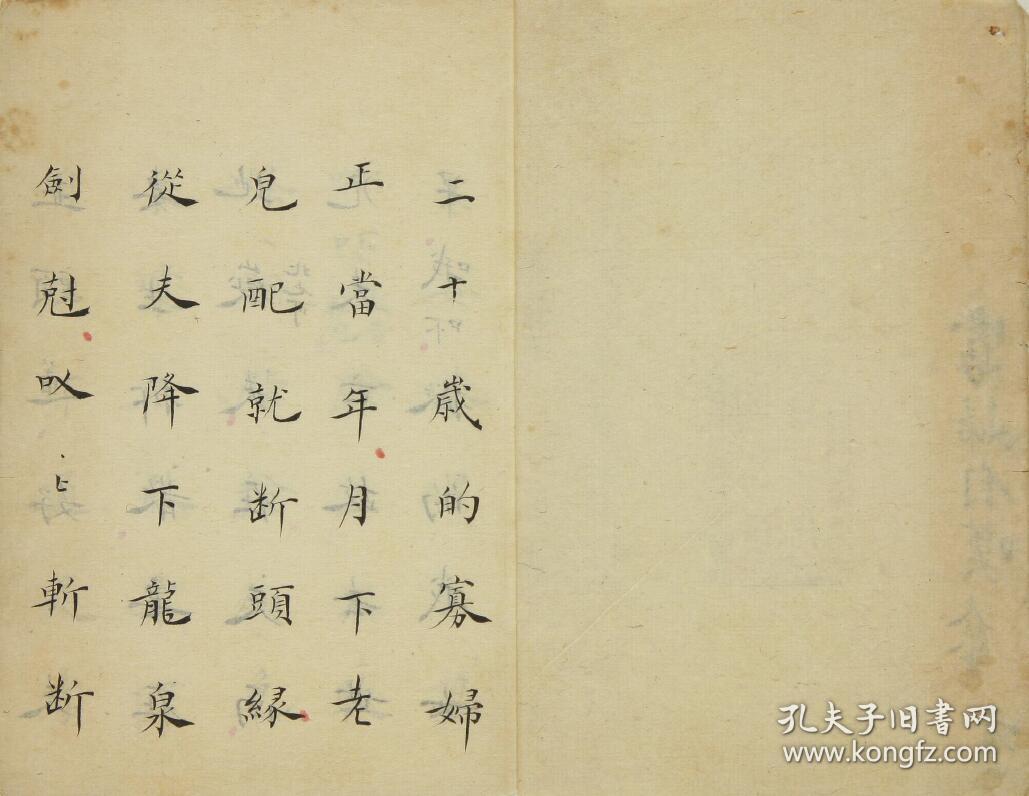 二十歲的寡婦
正當年月下老
皃配就断頭緣
從夫降下龍泉
劍尅叹ヒ斬断
孔夫子旧書网
www.kongfz.com